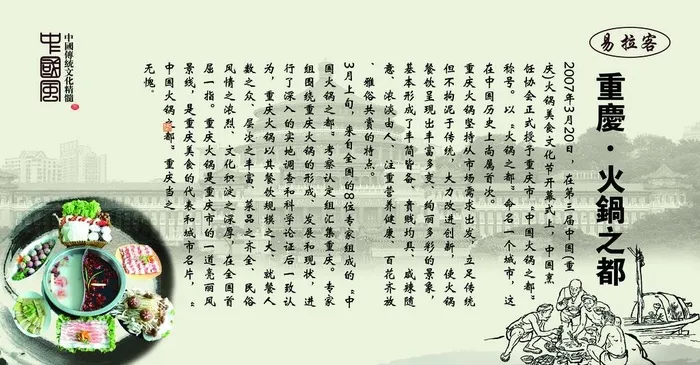 易拉客
重慶·火鍋之都
2007年3月20日，在第三届中国(重
庆)火锅美食文化节开幕式上，中国烹
饪协会正式授予重庆市“中国火锅之都”
称号。以“火锅之都”命名一个城市，这
在中国历史上尚属首次。
重庆火锅坚持从市场需求出发，立足传统
但不拘泥于传统，大力改进创新，使火锅
餐饮呈现出丰富多变、绚丽多彩的景象，
基本形成了丰简皆备、贵贱均具、咸辣随
意、浓淡由人、注重营养健康、百花齐放
、雅俗共赏的特点。
3月上旬，来自全国的8位专家组成的“中
国火锅之都”考察认定组汇集重庆。专家
组围绕重庆火锅的形成、发展和现状，进
行了深入的实地调查和科学论证后一致认
为，重庆火锅以其餐饮规模之大、就餐人
数之众、层次之丰富、菜品之齐全、民俗
风情之浓烈、文化积淀之深厚，在全国首
屈一指。重庆火锅是重庆市的一道亮丽风
景线，是重庆美食的代表和城市名片，“
中国火锅之都”重庆当之
无愧。
中國傳統文化精髓
中國風